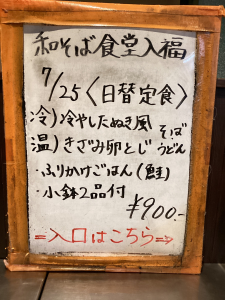 和そば食堂入福
7/25〈日替定食〉
冷)冷やしたぬき風 そば
温)きざみ卵とじ うどん
・ふりかけごはん(鮭)
・小鉢2品付
¥900.-
⇒入口はこちら⇒